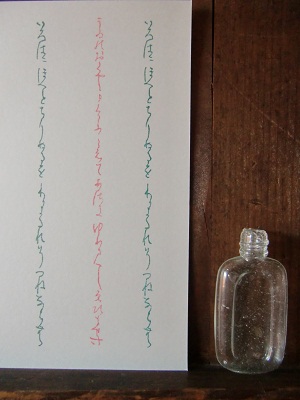 いろはにほへとちりぬるをわかよたれそつねならむ
うゐのおくやまけふこえてあさきゆめみしゑひもせす
いろはにほへとちりぬるをわかよたれそつねならむ